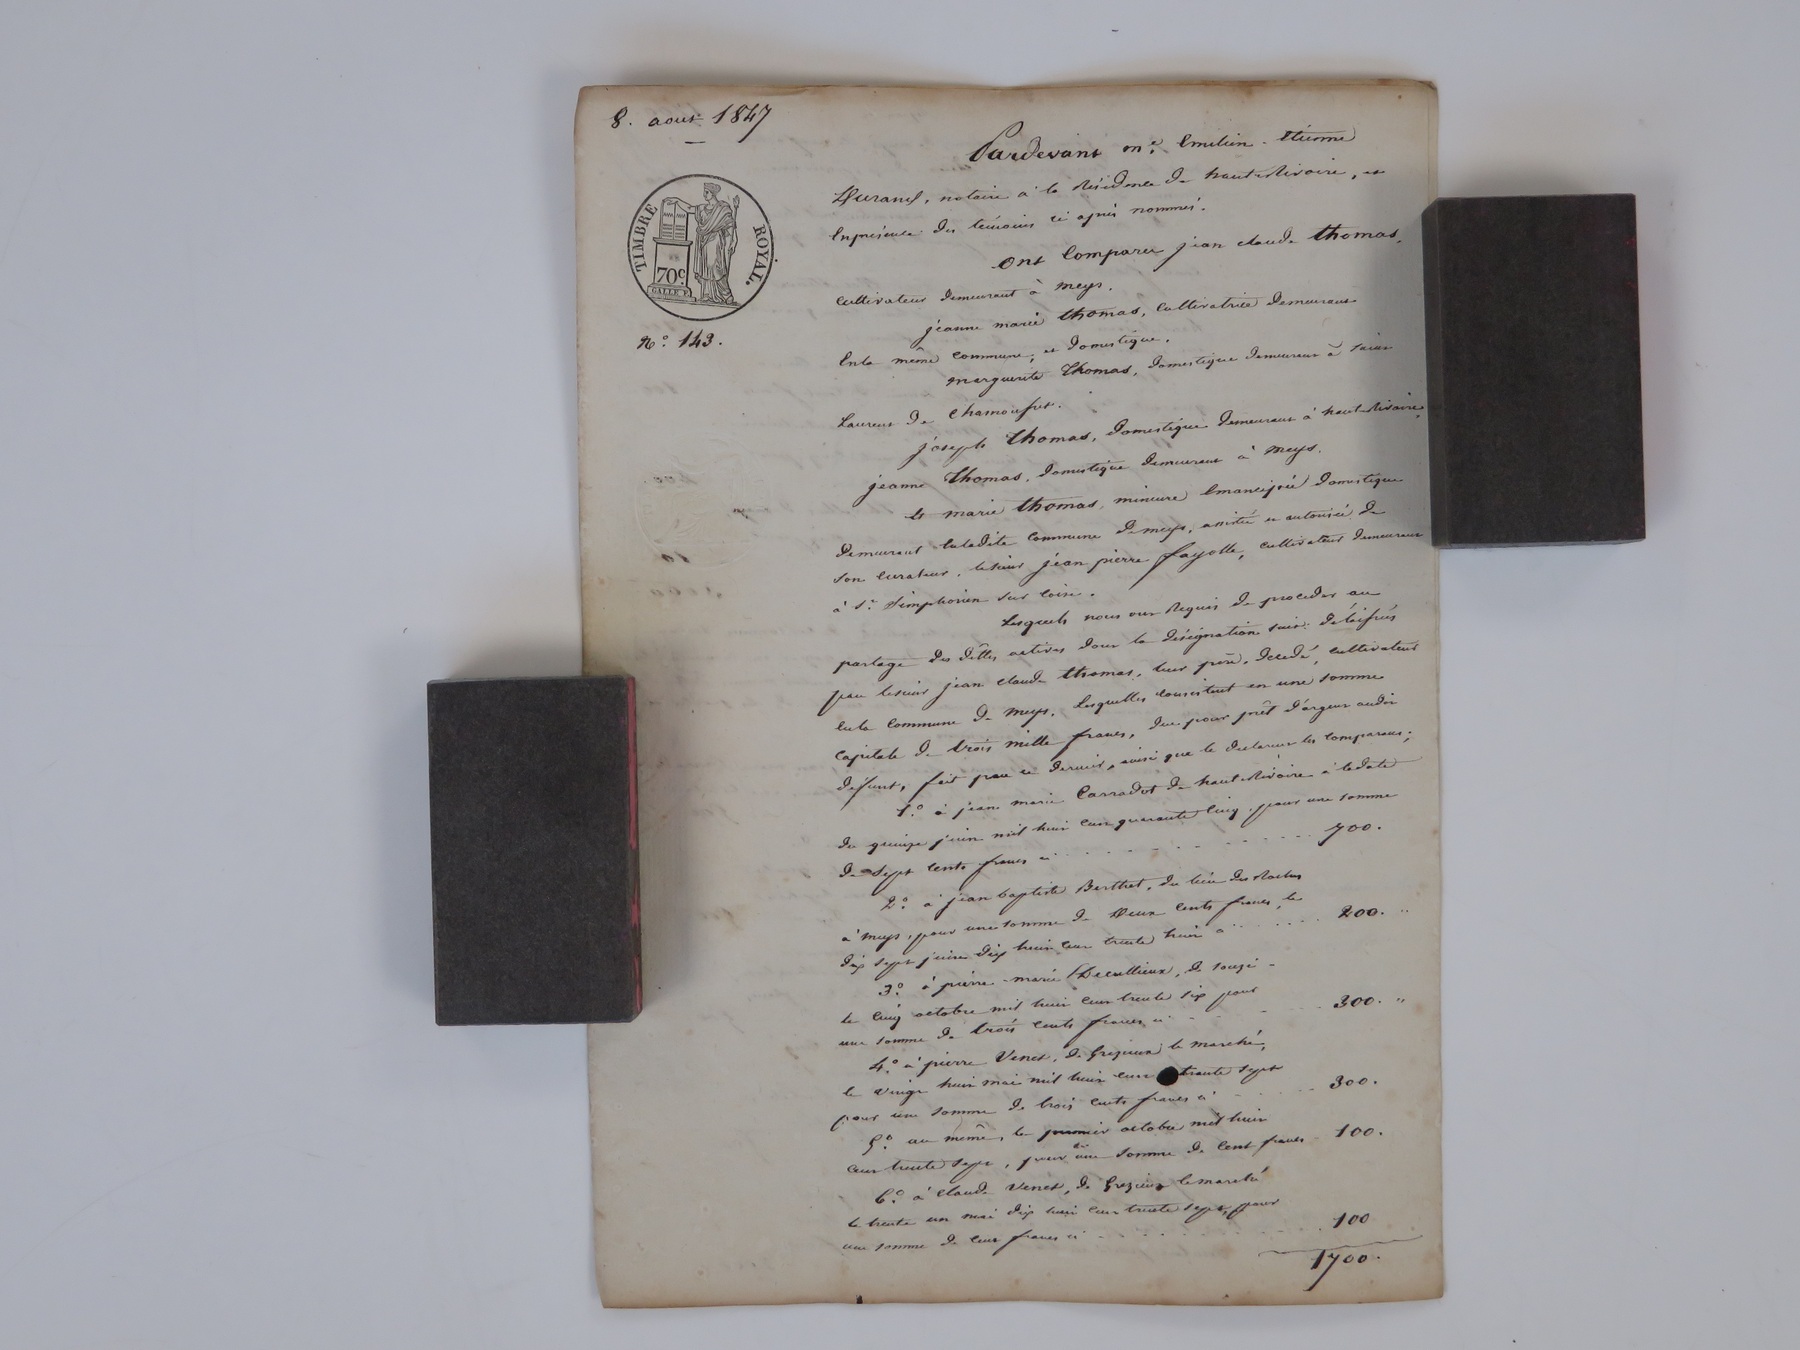 8. aout 1847
TIMBRE ROYAL.
70c
GALLE F.
N.° 143.
Pardevant me. Emilien - Etienne
Durand, notaire à la Résidence de haute-Rivoire, et
Enprésence des témoins ci après nommés.
Ont Comparu jean claude thomas,
cultivateur demeurant à meys.
jeanne marie thomas, cultivatrice demeurant
Enla même commune, et domestique.
marguerite thomas, domestique demeurant à saint
Laurent de chamousset.
joseph thomas, domestique demeurant à haute-Rivoire,
jeanne thomas, domestique demeurant à meys.
et marie thomas, mineure émancipée domestique
demeurant enladite commune de meys, assistée et autorisée de
son curateur, lesieur jean pierre fayolle, cultivateur demeurant
à St. Simphorien sur Coise.
Lesquels nous ont Requis de procéder au
partage des dêttes actives dont la désignation suit délaissées
par lesieur jean claude thomas, leur père, décédé, cultivateur
enla commune de meys. Lesquelles consistent en une somme
capitale de trois mille francs, due pour prêt d'argent audit
défunt, fait par ce dernier, ainsi que le déclarent les comparans;
1.° à jean marie Carradot de haute-Rivoire à ladate
du quinze juin mil huit cent quarante cinq, pour une somme
de sept cents francs ci 700.
2.° à jean baptiste Berthet, du lieu des Roches
à meys, pour une somme de Deux cents francs, le
dix sept juin dix huit cent trente huit ci 200. "
3.° à pierre-marie Decultieux, de souzi -
le cinq octobre mil huit cent trente six pour
une somme de trois cents francs ci 300. "
4.° à pierre Venet, de Grezieux le marché,
le vingt huit mai mil huit cent trente sept
pour une somme de trois cents francs ci 300.
5.° au même, le premier octobre mil huit
cent trente sept, pour une somme de Cent francs 100.
6.° à claude Venet, de Grezieux lemarché
le trente un mai dix huit cent trente sept, pour
une somme de cent francs ci 100
1700.